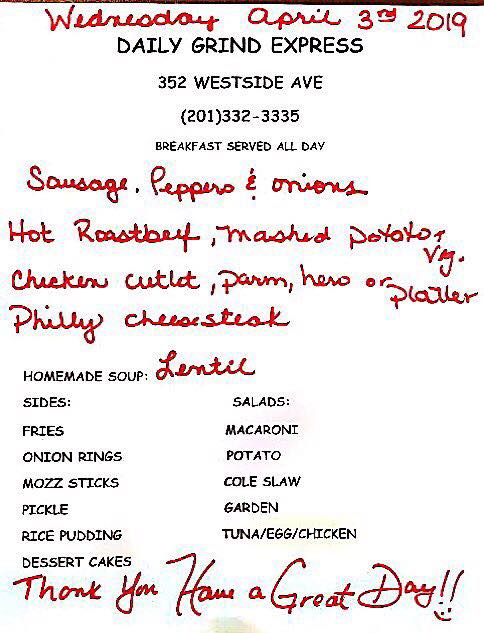 Wednesday April 3rd 2019
DAILY GRIND EXPRESS
352 WESTSIDE AVE
(201)332-3335
BREAKFAST SERVED ALL DAY
Sausage, Peppers & onions
Hot Roastbeef, mashed potato + Veg.
Chicken cutlet, parm, hero or platter
Philly cheesesteak
HOMEMADE SOUP: Lentil
SIDES: SALADS:
FRIES MACARONI
ONION RINGS POTATO
MOZZ STICKS COLE SLAW
PICKLE GARDEN
RICE PUDDING TUNA/EGG/CHICKEN
DESSERT CAKES
Thank You Have a Great Day!!